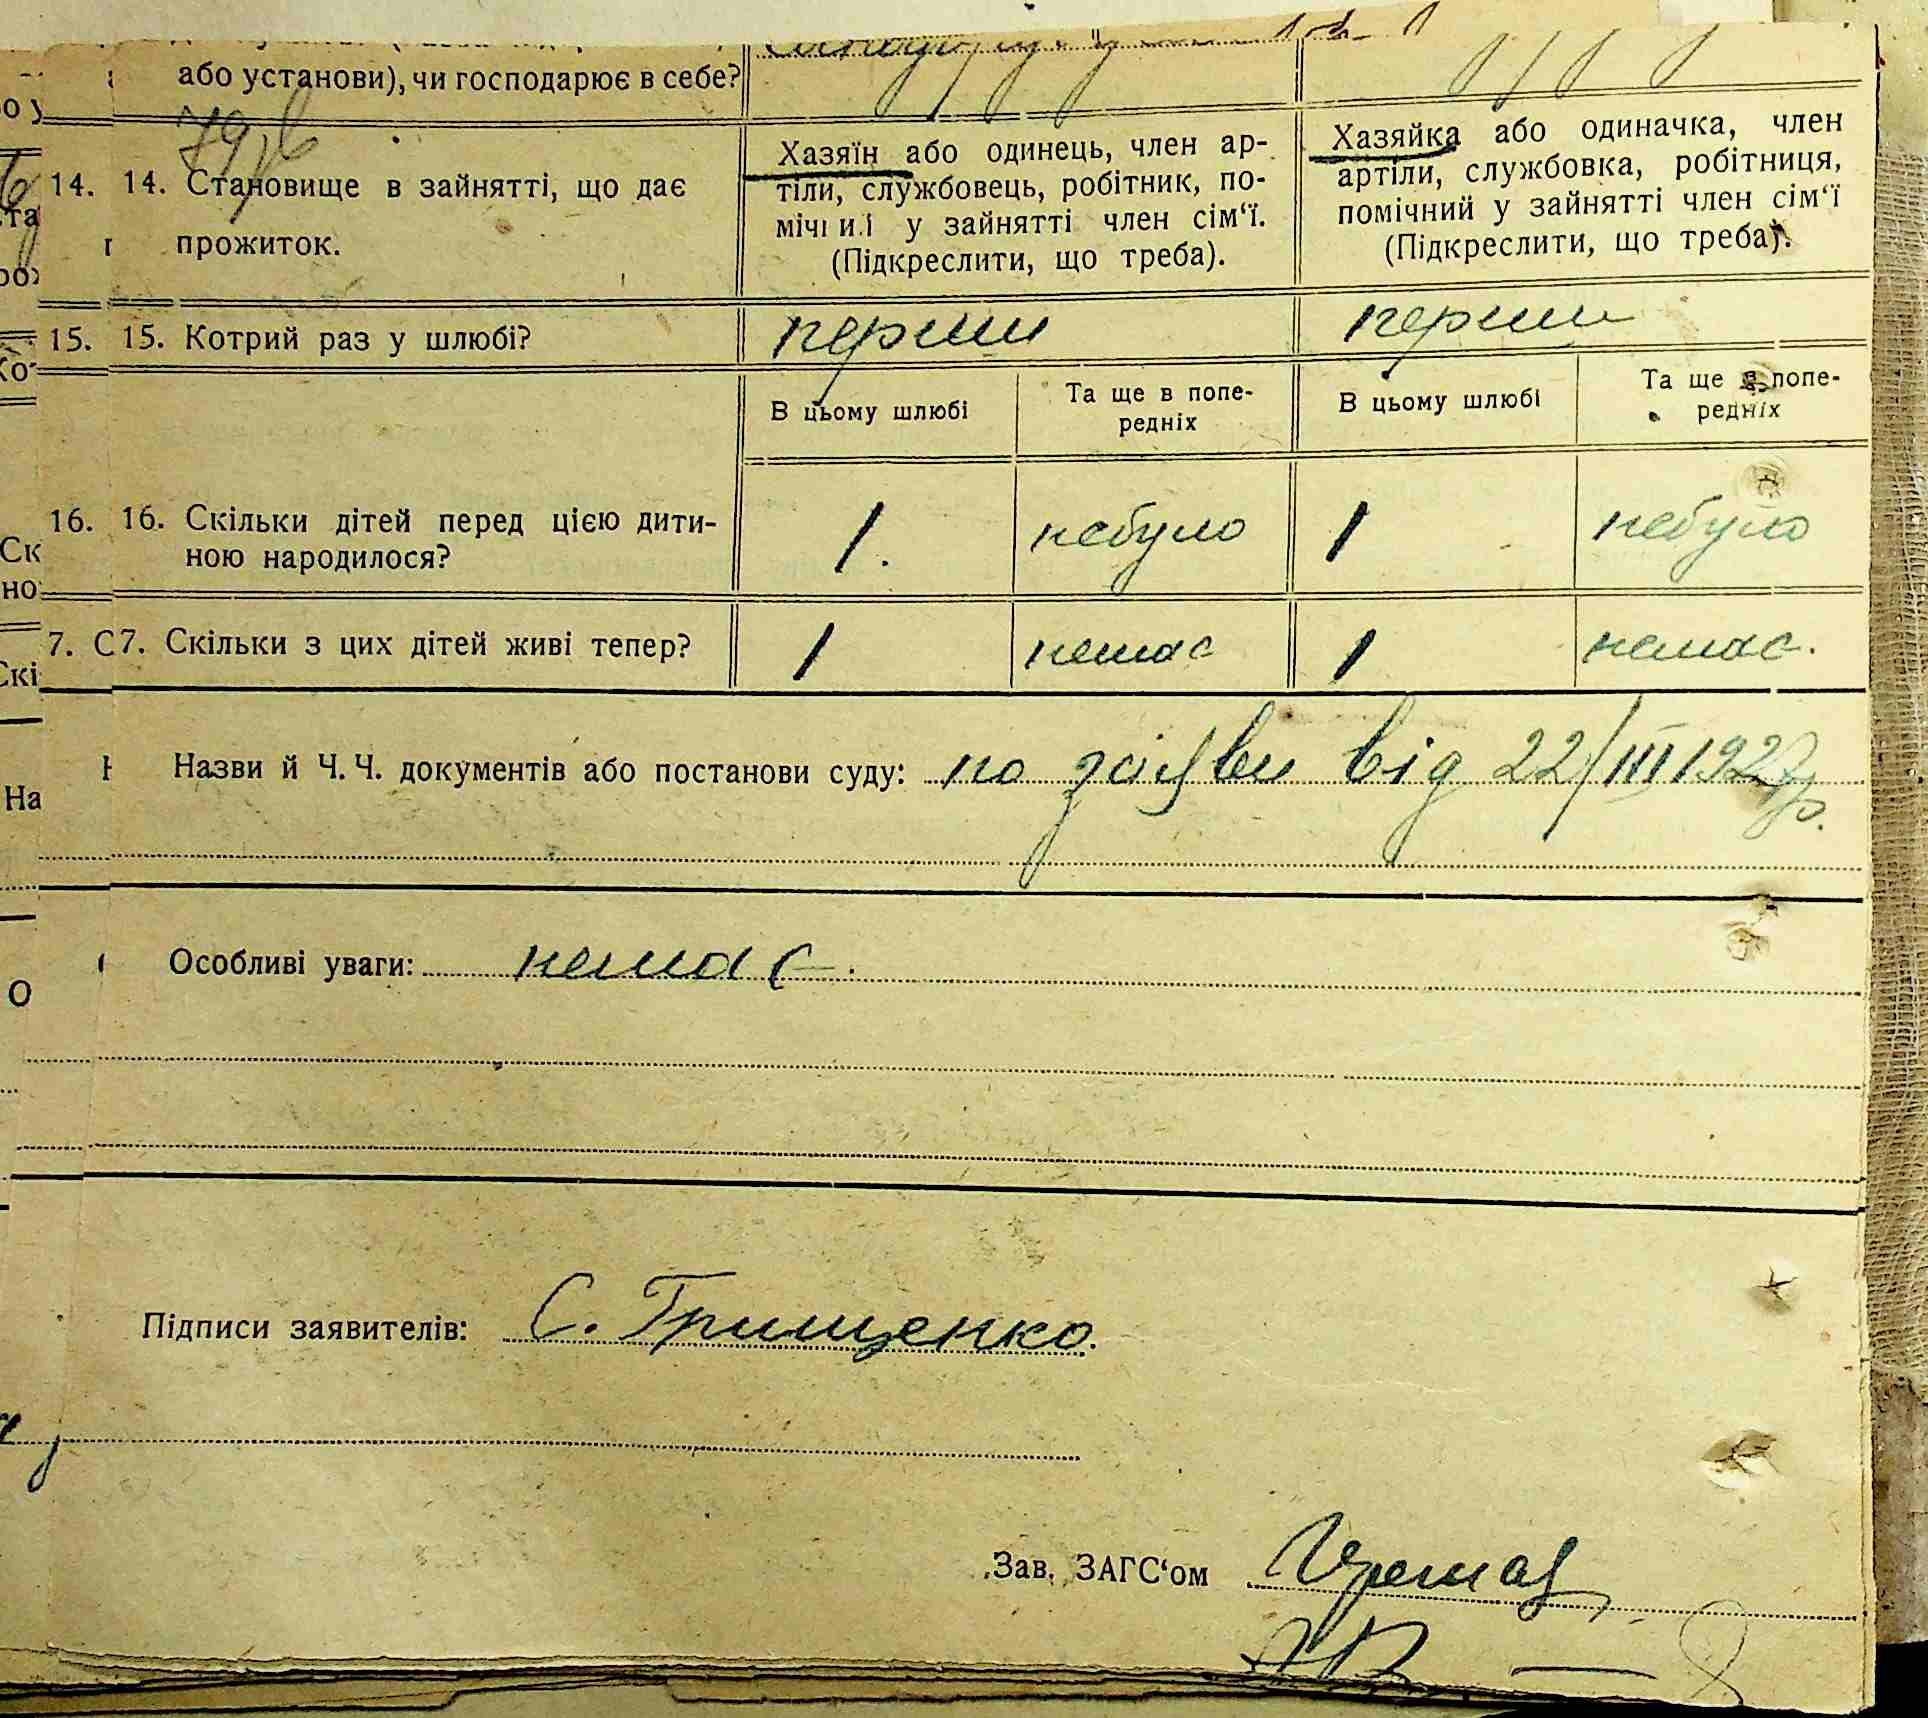 або установи), чи господарює в себе?
14. 14. Становище в зайнятті, що дає
прожиток.
Хазяїн або одинець, член ар-
тіли, службовець, робітник, по-
мічн и й у зайнятті член сім‘ї.
(Підкреслити, що треба).
Хазяйка або одиначка, член
артіли, службовка, робітниця,
помічний у зайнятті член сім‘ї
(Підкреслити, що треба).
15. 15. Котрий раз у шлюбі? перший перший
В цьому шлюбі
Та ще в попе-
редніх
В цьому шлюбі
Та ще в попе-
редніх
16. 16. Скільки дітей перед цією дити-
ною народилося?
1. небуло 1 небуло
7. С 7. Скільки з цих дітей живі тепер? 1 немає 1 немає.
Назви й Ч. Ч. документів або постанови суду: по заяви від 22/III 1927р.
Особливі уваги: немає.
Підписи заявителів: С. Грищенко.
Зав. ЗАГС‘ом